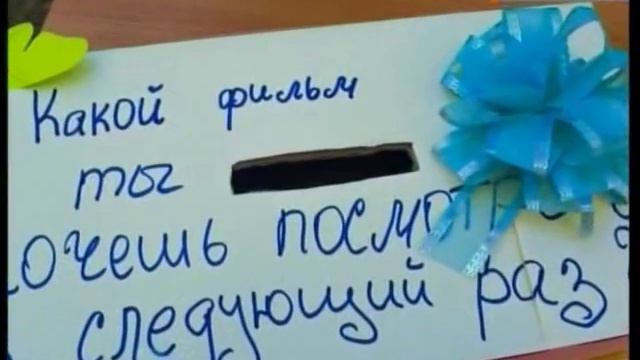 Какой фильм
ты
хочешь посмотреть
следующий раз